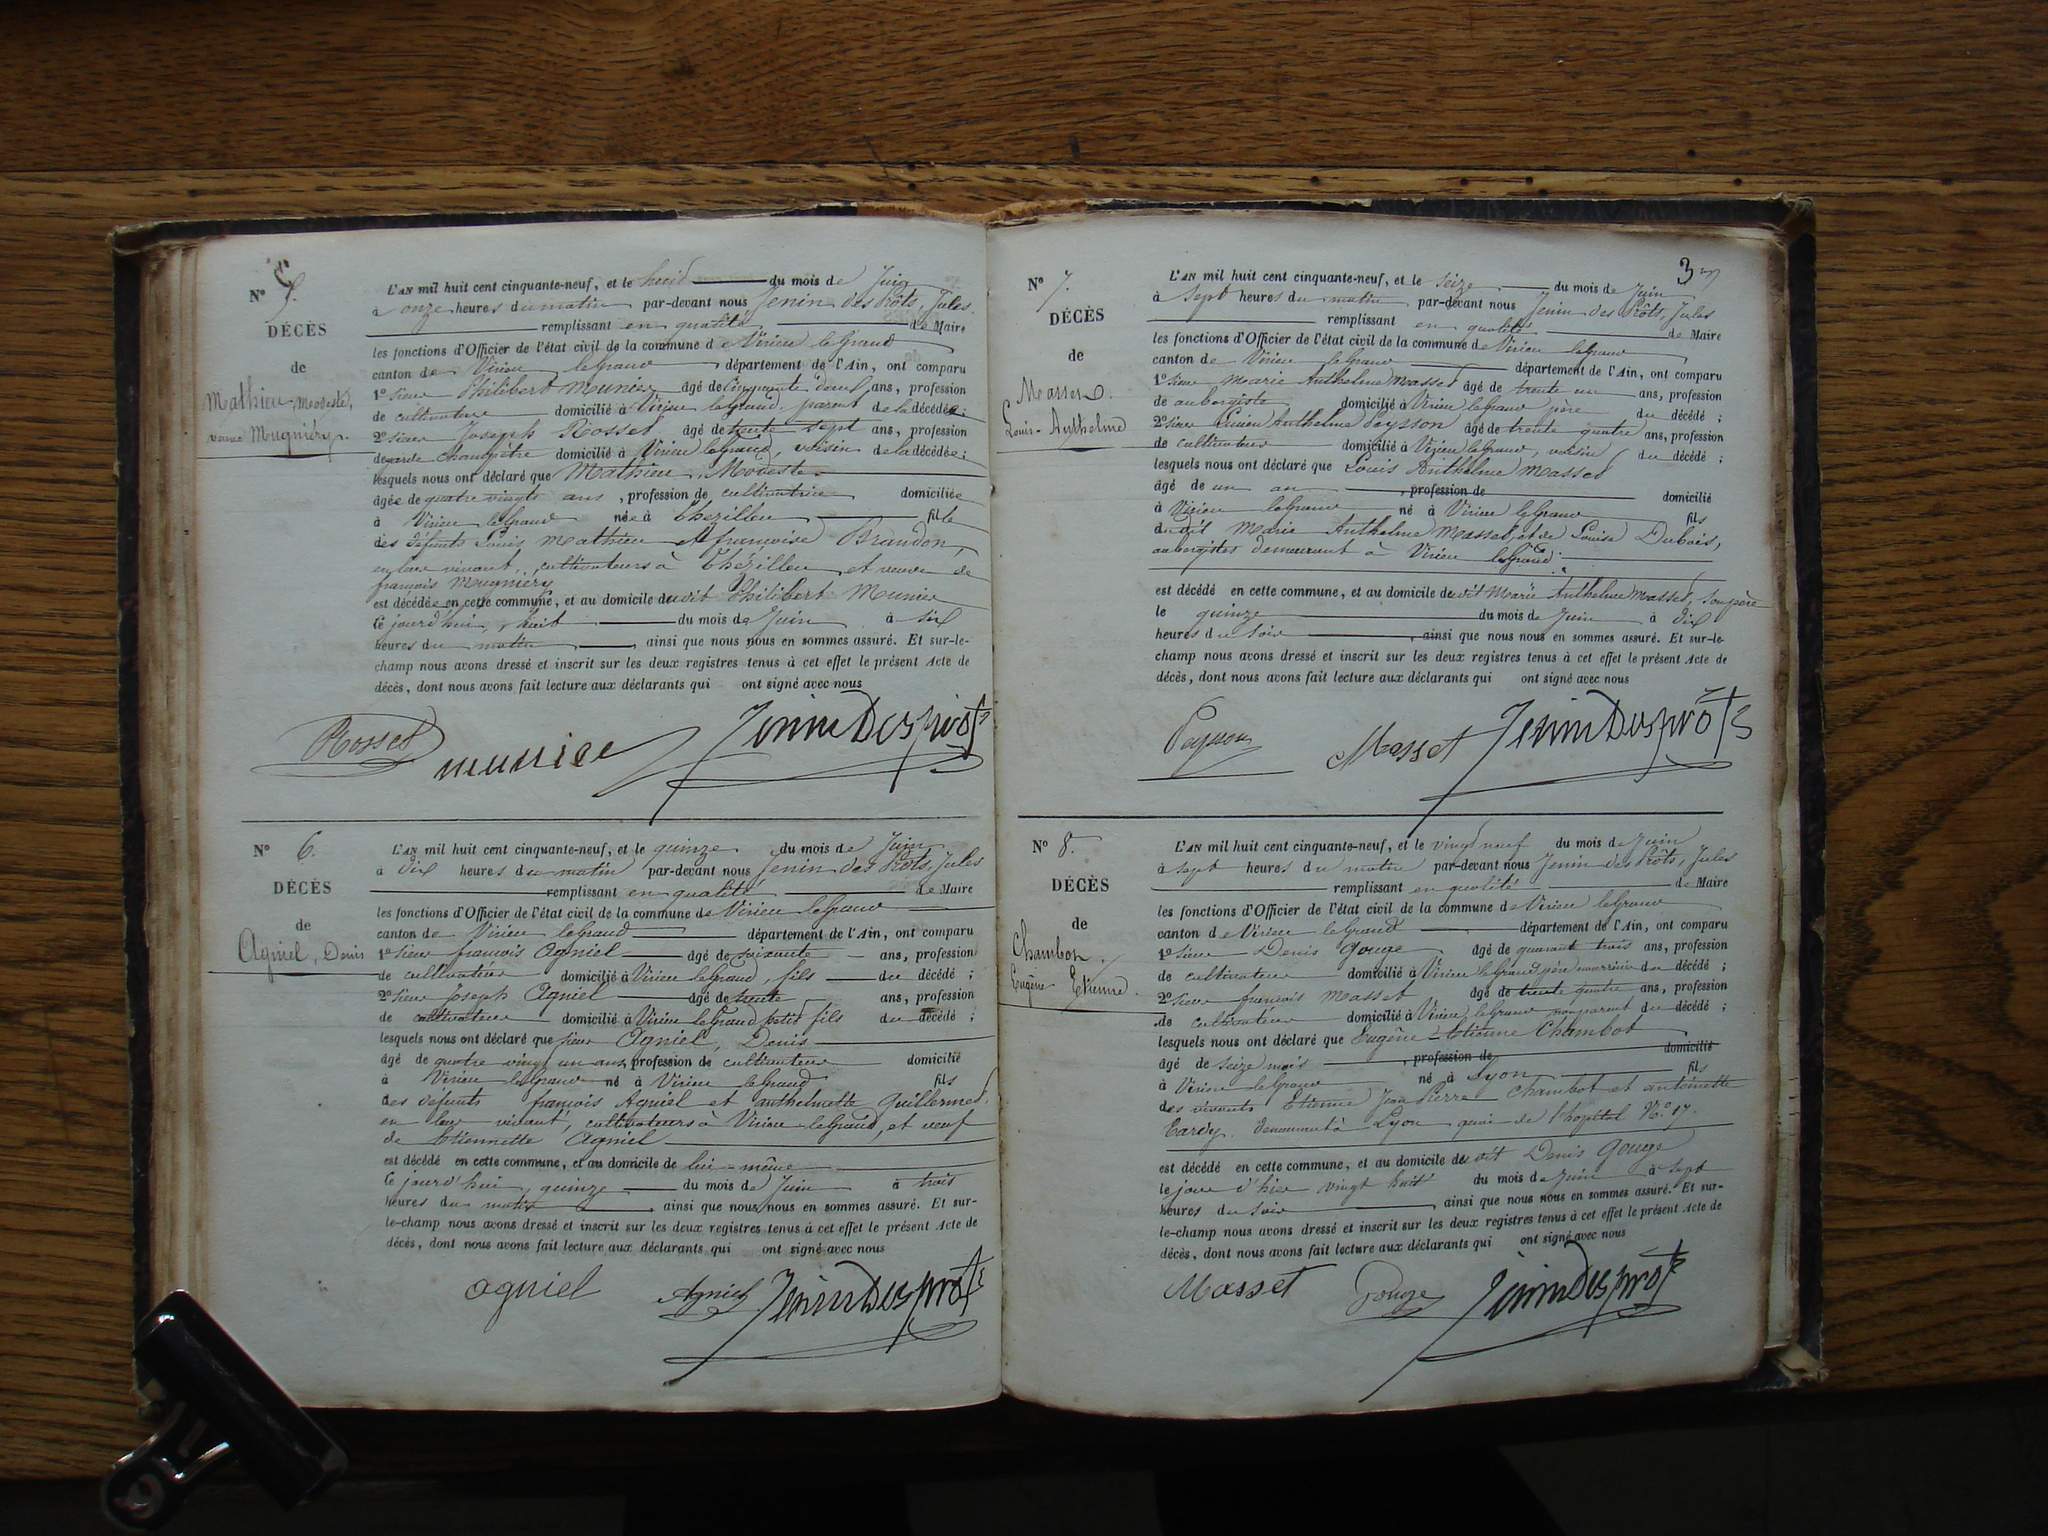 N° 5.
DÉCÈS
de
Mathieu, Modeste,
veuve Mugniéry.
L'AN mil huit cent cinquante-neuf, et le huit du mois de Juin
à onze heures du matin par-devant nous Jenin des Prôts, Jules
remplissant en qualité de Maire
les fonctions d'Officier de l'état civil de la commune de Virieu le Grand
canton de Virieu le Grand département de l'Ain, ont comparu
1° sieur Philibert Munier âgé de Cinquante deux ans, profession
de cultivateur domicilié à Virieu le Grand, parent de la décédée;
2° sieur Joseph Rosset âgé de trente sept ans, profession
de garde champêtre domicilié à Virieu le Grand, voisin de la décédée;
lesquels nous ont déclaré que Mathieu, Modeste
âgée de quatre vingts ans, profession de cultivatrice domiciliée
à Virieu le Grand née à Thézillieu fille
des défunts Louis Mathieu et françoise Brandon,
en leur vivant, cultivateurs à Thézillieu et veuve de
françois Mugniéry
est décédée en cette commune, et au domicile du dit Philibert Munier
ce jourd'hui, huit du mois de Juin à six
heures du matin, ainsi que nous nous en sommes assuré. Et sur-le-
champ nous avons dressé et inscrit sur les deux registres tenus à cet effet le présent Acte de
décès, dont nous avons fait lecture aux déclarants qui ont signé avec nous
Rosset munier Jenin Des prôts
N° 6.
DÉCÈS
de
Agniel, Denis
L'AN mil huit cent cinquante-neuf, et le quinze du mois de Juin
à dix heures du matin par-devant nous Jenin des Prôts, Jules
remplissant en qualité de Maire
les fonctions d'Officier de l'état civil de la commune de Virieu le Grand
canton de Virieu le Grand département de l'Ain, ont comparu
1° sieur françois Agniel âgé de soixante ans, profession
de cultivateur domicilié à Virieu le Grand, fils du décédé;
2° sieur Joseph Agniel âgé de trente ans, profession
de cultivateur domicilié à Virieu le Grand petit fils du décédé;
lesquels nous ont déclaré que sieur Agniel, Denis
âgé de quatre vingt un ans, profession de cultivateur domicilié
à Virieu le Grand né à Virieu le Grand fils
des défunts françois Agniel et anthelmette Guillermet,
en leur vivant, cultivateurs à Virieu-le Grand, et veuf
de Etiennette Agniel
est décédé en cette commune, et au domicile de lui-même
ce jourd'hui, quinze du mois de Juin à trois
heures du matin, ainsi que nous nous en sommes assuré. Et sur-
le-champ nous avons dressé et inscrit sur les deux registres tenus à cet effet le présent Acte de
décès, dont nous avons fait lecture aux déclarants qui ont signé avec nous
agniel Agniel Jenin Des prôts
3
N° 7.
DÉCÈS
de
Masset.
Louis-Anthelme
L'AN mil huit cent cinquante-neuf, et le seize du mois de Juin
à sept heures du matin par-devant nous Jenin des Prôts, Jules
remplissant en qualité de Maire
les fonctions d'Officier de l'état civil de la commune de Virieu le Grand
canton de Virieu le Grand département de l'Ain, ont comparu
1° sieur Marie Anthelme Masset âgé de trente un ans, profession
de aubergiste domicilié à Virieu le Grand père du décédé;
2° sieur Lucien Anthelme Peysson âgé de trente quatre ans, profession
de cultivateur domicilié à Virieu le Grand, voisin du décédé;
lesquels nous ont déclaré que Louis Anthelme Masset
âgé de un an, profession de domicilié
à Virieu le Grand né à Virieu le Grand fils
du dit Marie Anthelme Masset, et de Louise Dubois,
aubergistes demeurant à Virieu le Grand.
est décédé en cette commune, et au domicile du dit Marie Anthelme Masset, son père
le quinze du mois de Juin à dix
heures du soir, ainsi que nous nous en sommes assuré. Et sur-le-
champ nous avons dressé et inscrit sur les deux registres tenus à cet effet le présent Acte de
décès, dont nous avons fait lecture aux déclarants qui ont signé avec nous
Peysson Masset Jenin Des prôts
N° 8.
DÉCÈS
de
Chambot.
Eugène Etienne.
L'AN mil huit cent cinquante-neuf, et le vingt neuf du mois de Juin
à sept heures du matin par-devant nous Jenin des Prôts, Jules
remplissant en qualité de Maire
les fonctions d'Officier de l'état civil de la commune de Virieu le Grand
canton de Virieu le Grand département de l'Ain, ont comparu
1° sieur Denis Gouge âgé de quarante trois ans, profession
de cultivateur domicilié à Virieu le Grand père nourricier du décédé;
2° sieur françois Masset âgé de trente quatre ans, profession
de cultivateur domicilié à Virieu le Grand non parent du décédé;
lesquels nous ont déclaré que Eugène-Etienne Chambot
âgé de seize mois, profession de domicilié
à Virieu le Grand né à Lyon fils
des vivants Etienne Jean Pierre Chambot et antoinette
Tardy, demeurant à Lyon quai de l'hopital N° 17.
est décédé en cette commune, et au domicile du dit Denis Gouge
le jour d'hier vingt huit du mois de Juin à sept
heures du soir, ainsi que nous nous en sommes assuré. Et sur-
le-champ nous avons dressé et inscrit sur les deux registres tenus à cet effet le présent Acte de
décès, dont nous avons fait lecture aux déclarants qui ont signé avec nous
Masset Gouge Jenin Des prôts